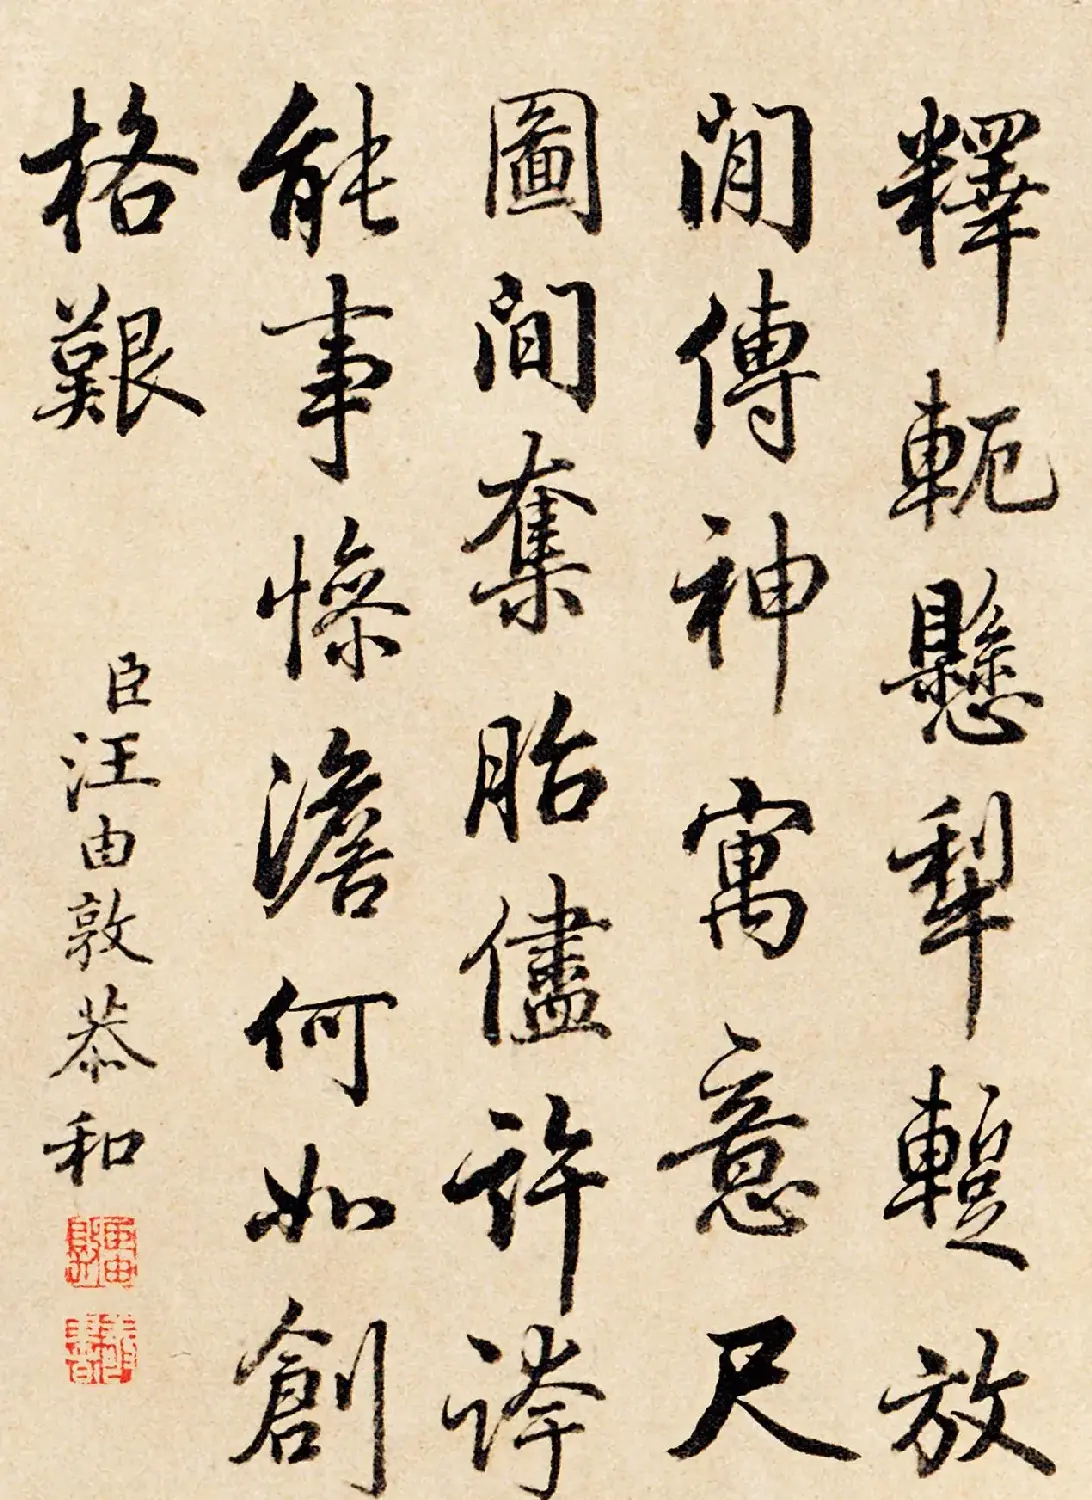 釋軛懸犁放
閒傳神寓意尺
圖間奪胎儘許誇
能事慘澹何如創
格艱
臣汪由敦恭和